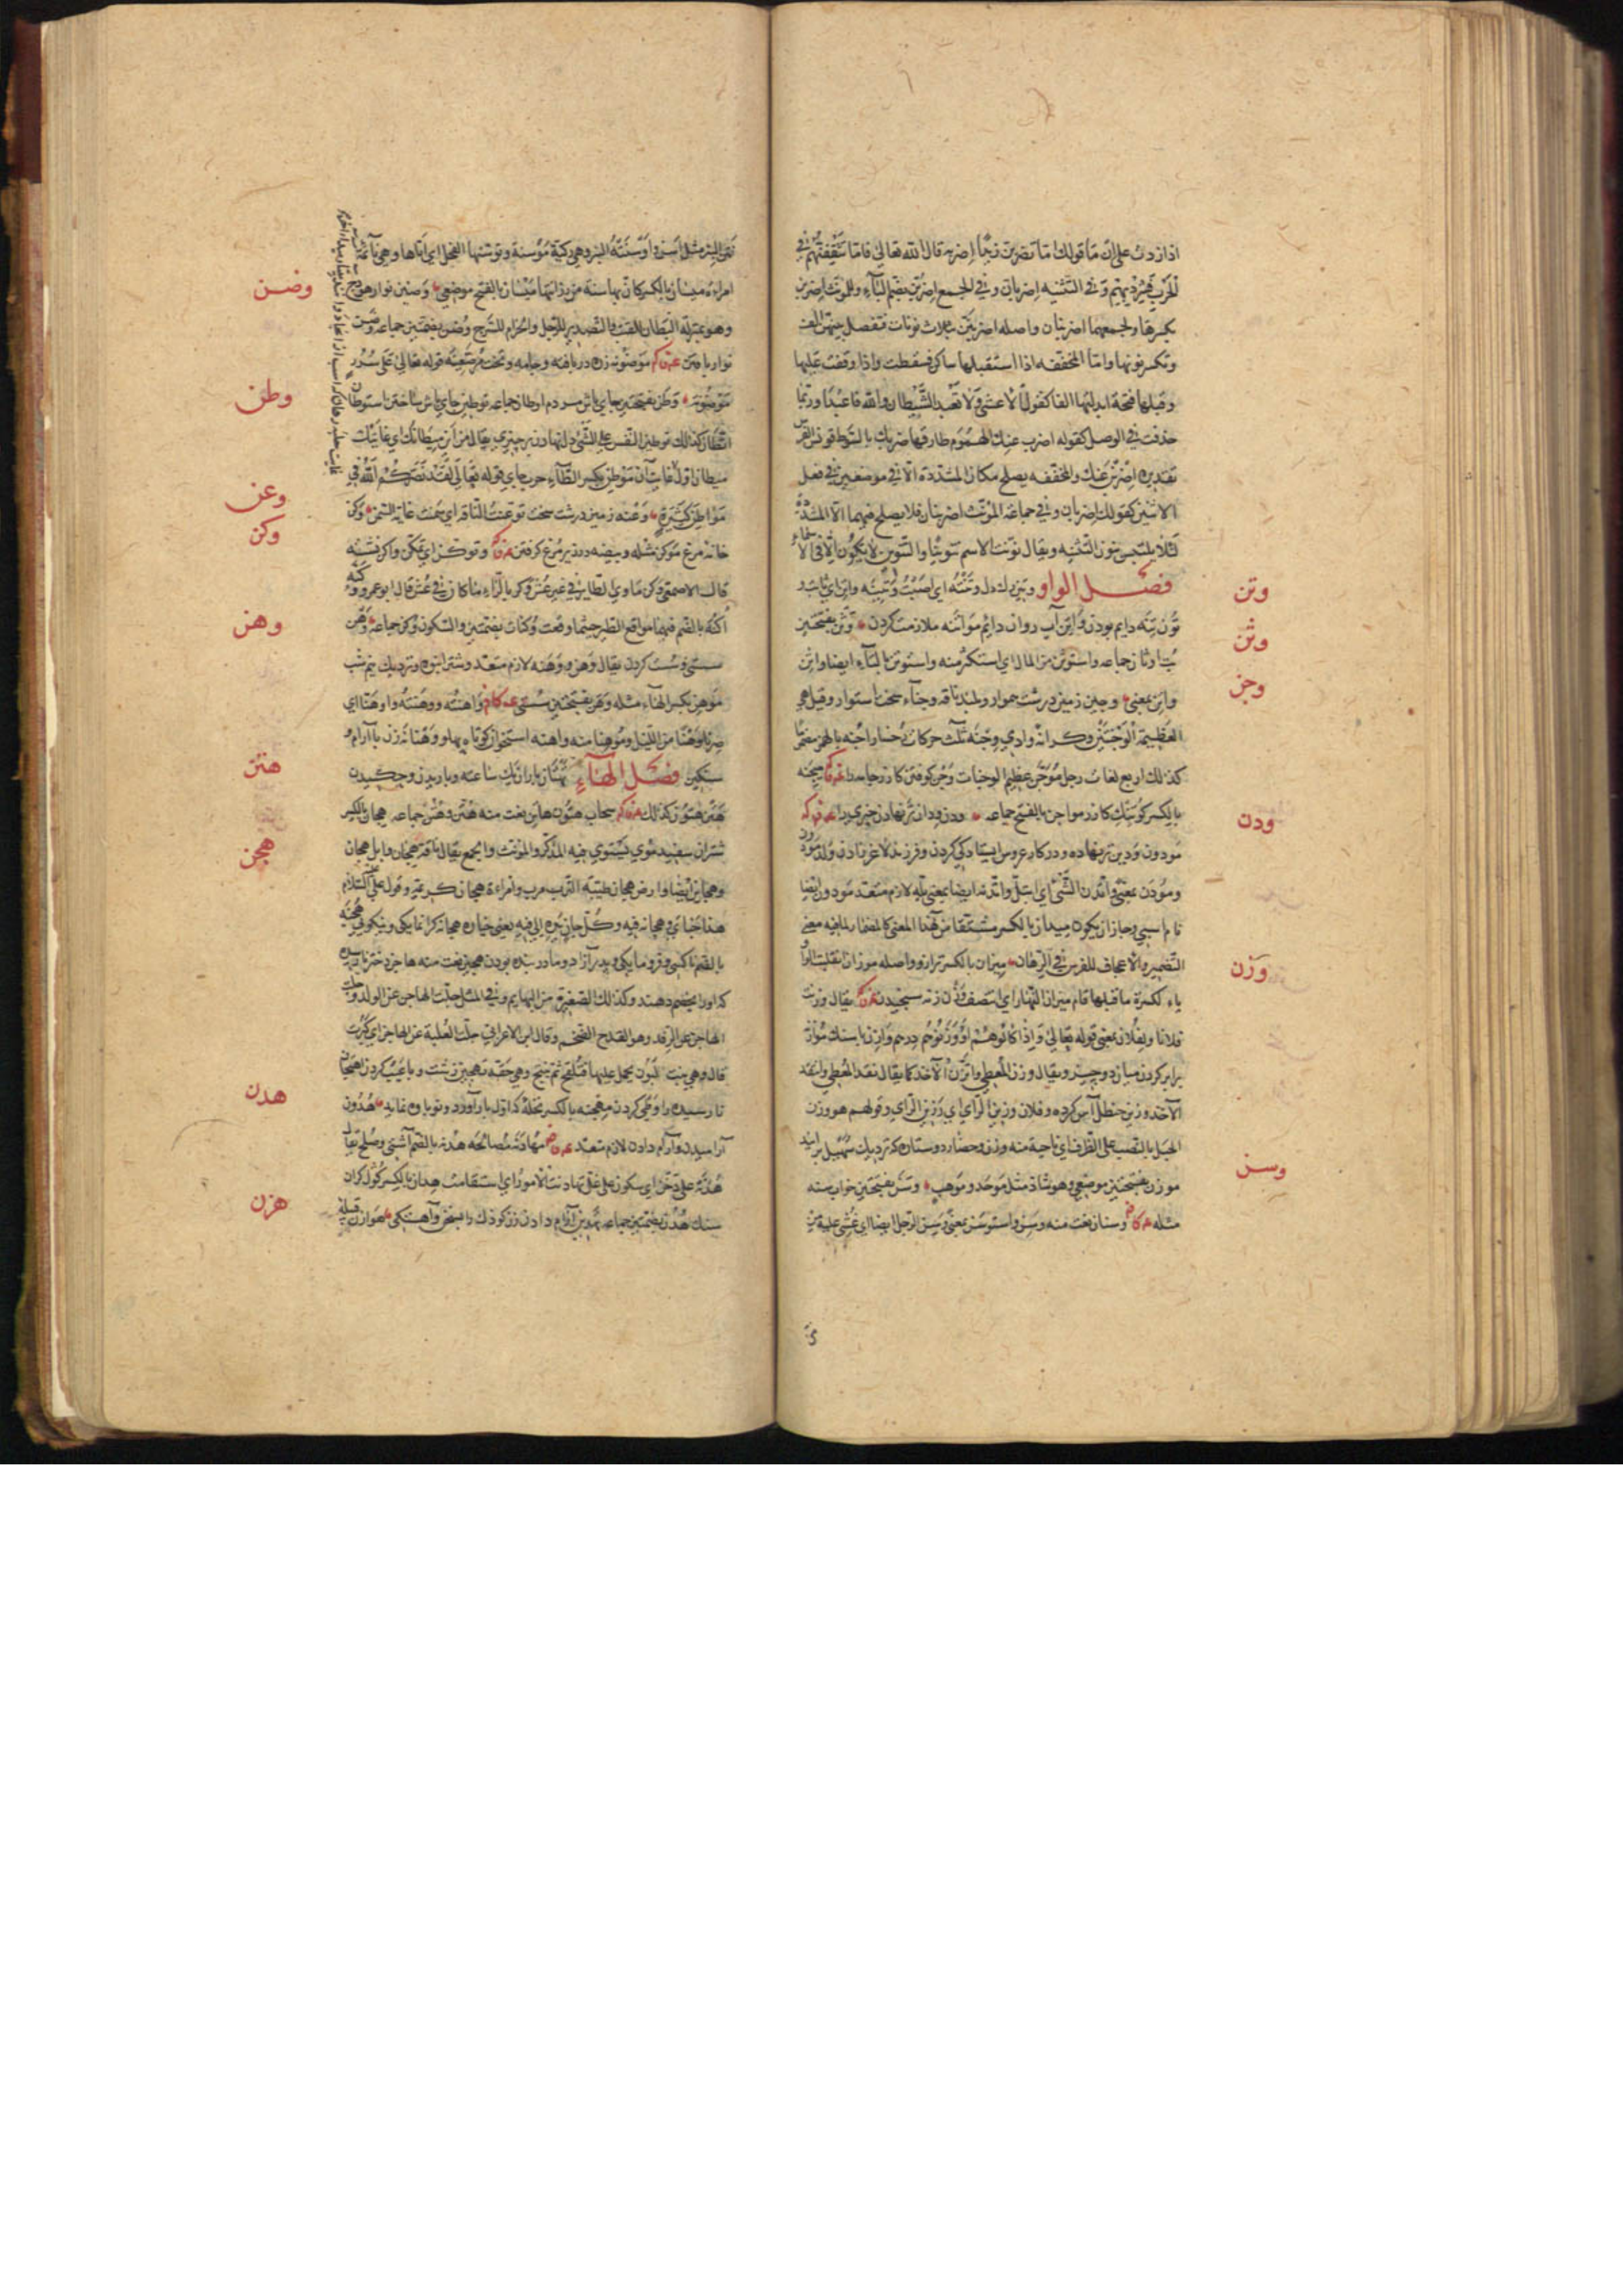 اذا زدت على ان ما قولك اما تضربن زيدا اضربه قال الله تعالى فاما تثقفنهم في
الحرب فشرد بهم وفي التثنيه اضربان وفي الجمع اضربن بضم الباء وللمونث اضربن
بكسرها ولجمعهما اضربنان واصله اضربنن بثلاث نونات فتفصل بينهن الف
وتكسر نونها واما المخففه اذا استقبلها ساكن فسقطت واذا وقفت عليها
وقبلها فتحة ابدلتها الفا كقول الاعشى ولا تعبد الشيطان والله فاعبدا وربما
حذفت في الوصل كقوله اضرب عنك الهموم طارقها ضربك بالسوط قونس الفرس
تقديره اضربن عنك والمخففه يصلح مكان المشددة الا في موضعين في فعل
الاثنين كقولك اضربان وفي جماعة المؤنث اضربنان فلا يصلح فيهما الا المشددة
لئلا يلتبس بنون التثنيه ويقال نونت الاسم تنوينا والتنوين لا يكون الا في الاسماء
فصل الواو وتين رك دل وتنته اي اصبت وتينه واتن اي ثابت
وتون تنه دايم بودن واتن آب روان دايم مواتنه ملازمت كردن وثن بفتحتين
بت اوثان جماعه واستوثن من المال اي استكثر منه واستوتن بالتاء ايضا واثن
واتن بمعنى وجين زمين درشت هموار وبلند ناقه وجناء سخت استوار وقيل هي
العظيمة الوجنتين وكرانه وادي وجنه بثلث حركات رخسار اجنه بالهمز مضما
كذلك اربع لغات رجل موجن عظيم الوجنات وجن كوفتن كازر جامه را ميجنه
بالكسر كوبنك كازر مواجن بالفتح جماعه ودن ودان تر نهادن چيزى را
مودون ودين تر نهاده ودر كار عروس ايستادكى كردن وفرزند لاغر زادن ولد مودون
ومودن بمعنى واتدن الشئ اي ابتل واتدنه ايضا بمعنى بله لازم متعد مودون ايضا
نام اسبى وجاز ان يكون ميدان بالكسر مشتقا من هذا المعنى كالمضمار لما فيه معنى
التضمير والاعجاف للفرس في الرهان ميزان بالكسر ترازو واصله موزان انقلبت الواو
ياء لكسرة ما قبلها قام ميزان النهار اي انتصف وزن زنه سنجيدن يقال وزنت
فلانا ولفلان بمعنى قوله تعالى واذا كالوهم او وزنوهم درهم وازن باسنك موازنه
برابر كردن ميان دو چيز ويقال وزن المعطى واتزن الآخذ كما يقال نقد المعطى وانتقد
الآخذ وزين حنظل آس كرده وفلان وزين الراي اي رزين الراي وقولهم هو وزن
الجبل بالنصب على الظرف اي ناحية منه وزن وحضار دو ستاره كه نزديك سهيل برايند
موزن بفتحتين موضعى وهو شاذ مثل موحد وموهب وسن بفتحتين خواب سنه
مثله وسنان نعت منه وسن واستوسن بمعنى وسن الرجل ايضا اي غشى عليه من
وتن
وثن
وجن
ودن
وزن
وسن
نتن البئر مثل اسن واوسنته البئر وهي ركية موسنة وتوسنها الفحل اي اتاها وهي نائمة
امراءة ميسان بالكسر كان بها سنة من رزانتها ميسان بالفتح موضعى وضين نوار هودج
وهو بمنزلة البطان للقتب والتصدير للرحل والحزام للسرج وضن بضمتين جماعه وضن
نوار بافتن موضونه زره در بافته وجامه وتخت مرصع منه قوله تعالى على سرر
موضونه وطن بفتحتين جاى باش مردم اوطان جماعه توطين جاى باش ساختن استيطان
اتطان كذلك توطين النفس على الشئ دل نهادن بر چيزى يقال من اين ميطانك اي غايتك
ميطان اول غايت آن موطن بكسر الطاء حرب جاى قوله تعالى لقد نصركم الله في
مواطن كثيرة وعنه زمين درشت سخت توعنت الناقه اي سمنت غاية السمن وكن
خانه مرغ موكن مثله وبيضه در زير مرغ كرفتن وتوكن اي تمكن واكن نشسته
قال الاصمعى وكن ماوى الطاير في غير عش وكر بالراء ما كان في عش قال ابو عمرو وكنه
اكنه بالضم فيهما مواقع الطير حيثما وقعت وكنات بضمتين والسكون وكن جماعه وهن
سستى وسست كردن يقال وهن ووهنه لازم متعد وشتر انبوه ونزديك نيم شب
موهن بكسر الهاء مثله وهن بفتحتين سستى واهنته ووهنته واوهنته اي
صرنا وهنا من الليل وموهنا منه واهنه استخوان كوتاه پهلو وهنانه زن با آرام و
سنكين فصل الهاء تهتان باران يك ساعته وباريدن وچكيدن
هتن هتون كذلك سحاب هتون هاتن نعت منه هتن وهتن جماعه هجان بالكسر
شتران سفيد موى يستوي فيه المذكر والمؤنث والجمع يقال ناقة هجان وابل هجان
وهجاين ايضا وارض هجان طيبة الترب مرب وامراءة هجان كريمة وقول علي عليه السلام
هذا جناي وهجانه فيه وكل جان يده الى فيه يعنى خياره هجانه كرانمايكى ونيكوئى هجنه
بالضم ناكسى وفرومايكى وپدر آزاد ومادر بنده بودن هجين نعت منه هاجن دختر نارسيده
كه اورا بخصم دهند وكذلك الصغيرة من البهايم وفي المثل جلت الهاجن عن الولد وجلت
الهاجن عن الرفد وهو القدح الضخم وقال ابن الاعرابى جلت العلبة عن الهاجن اي كبرت
قال وهي بنت لبون يحمل عليها فتلقح ثم تنتج وهي حقه تهجين زشت وبا عيب كردن اهتجان
نارسيده را وطى كردن مهجنه بالكسر نخله كه اول بار آورد ونوباوه نمايد هدون
آراميدن وآرام دادن لازم متعد مهادنة مصالحه هدنه بالضم آشتى وصلح يقال
هدنة على دخن اي سكون على غل تهادنت الامور اي استقامت هدان بالكسر كول كران
سنك هدن بضمتين جماعه تهدين آرام دادن زن كودك را بسخن وآهستكى هوازن قبيله
وضن
وطن
وعن
وكن
وهن
هتن
هجن
هدن
هزن